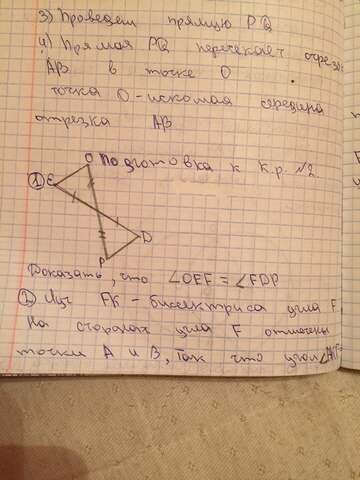 3) Проведем прямую PQ
4) Прямая PQ пересекает отрезок
AB в точке O
точка O - искомая середина
отрезка AB
Подготовка к К.р. №2
1) E O D P
Доказать, что ∠OEF = ∠FDP
2) Луч FK - биссектриса угла F.
На сторонах угла F отмечены
точки A и B, так что угол